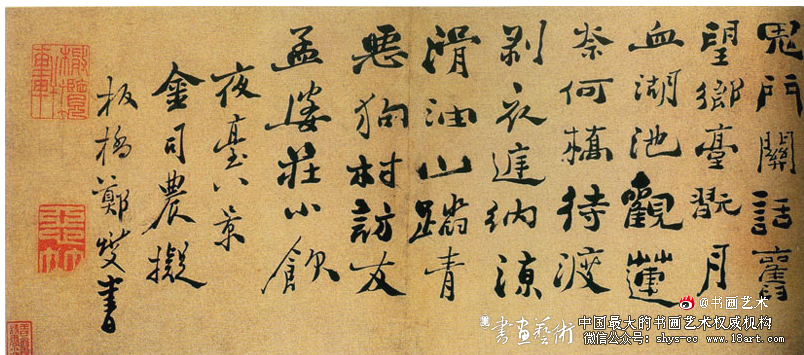 鬼門關話舊
望鄉臺翫月
血湖池觀蓮
奈何橋待渡
剥衣庭納涼
滑油山踏青
惡狗村訪友
孟婆莊小飲
夜臺八景
金司農擬
板橋鄭燮書
@书画艺术
書畫藝術
中国最大的书画艺术权威机构
微信公众号：shys-cc 网址：www.18art.com